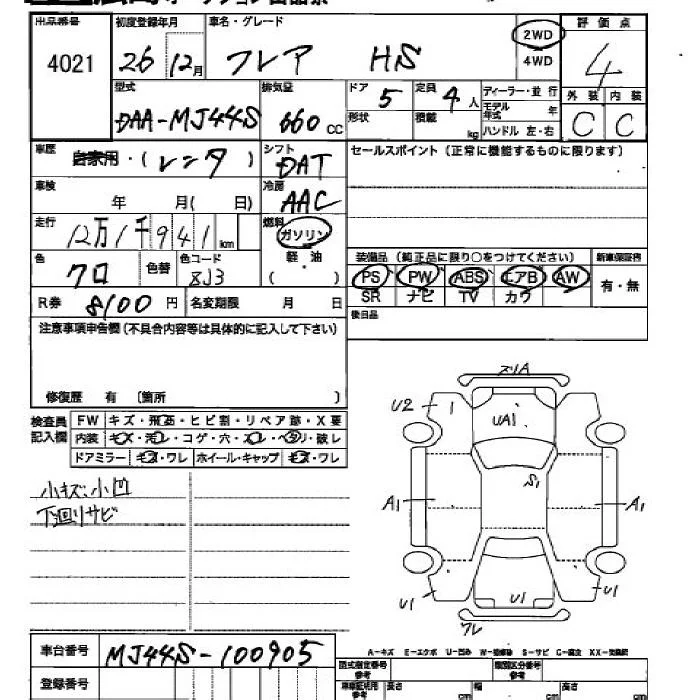 出品番号 初度登録年月 車名・グレード 評価点
4021 26 12月 フレア HS 2WD 4WD 4
型式 排気量 ドア 定員 ディーラー・並行 外装 内装
DAA-MJ44S 660 CC 5 4人 モデル年式 年 C C
形状 積載 kg ハンドル 左・右
車歴 自家用・(レンタ) シフト DAT セールスポイント(正常に機能するものに限ります)
車検 年 月( 日) 冷房 AAC
走行 12万1千941km 燃料 ガソリン
軽油
( )
色 クロ 色替 色コード ZJ3 装備品(純正品に限り○をつけてください) 新車保証書
PS PW ABS エアB AW 有・無
SR ナビ TV カワ
R券 8100円 名変期限 月 日 後日品
注意事項申告欄(不具合内容等は具体的に記入して下さい)
修復歴 有 (箇所 )
検査員記入欄 FW キズ・飛石・ヒビ割・リペア跡・X要
内装 キズ・汚レ・コゲ・穴・スレ・ヘタリ・破レ
ドアミラー キズ・ワレ ホイール・キャップ キズ・ワレ
小キズ、小凹
下回リサビ
ズリA
U2 1 UA1
S1
A1 A1
U1 U1 U1
ワレ
A-キズ E-エクボ U-凹み W-補修跡 S-サビ C-腐食 XX-交換済
車台番号 MJ44S-100905
登録番号
型式指定番号 参考 類別区分番号 参考
車庫証明用 参考 長さ cm 幅 cm 高さ cm